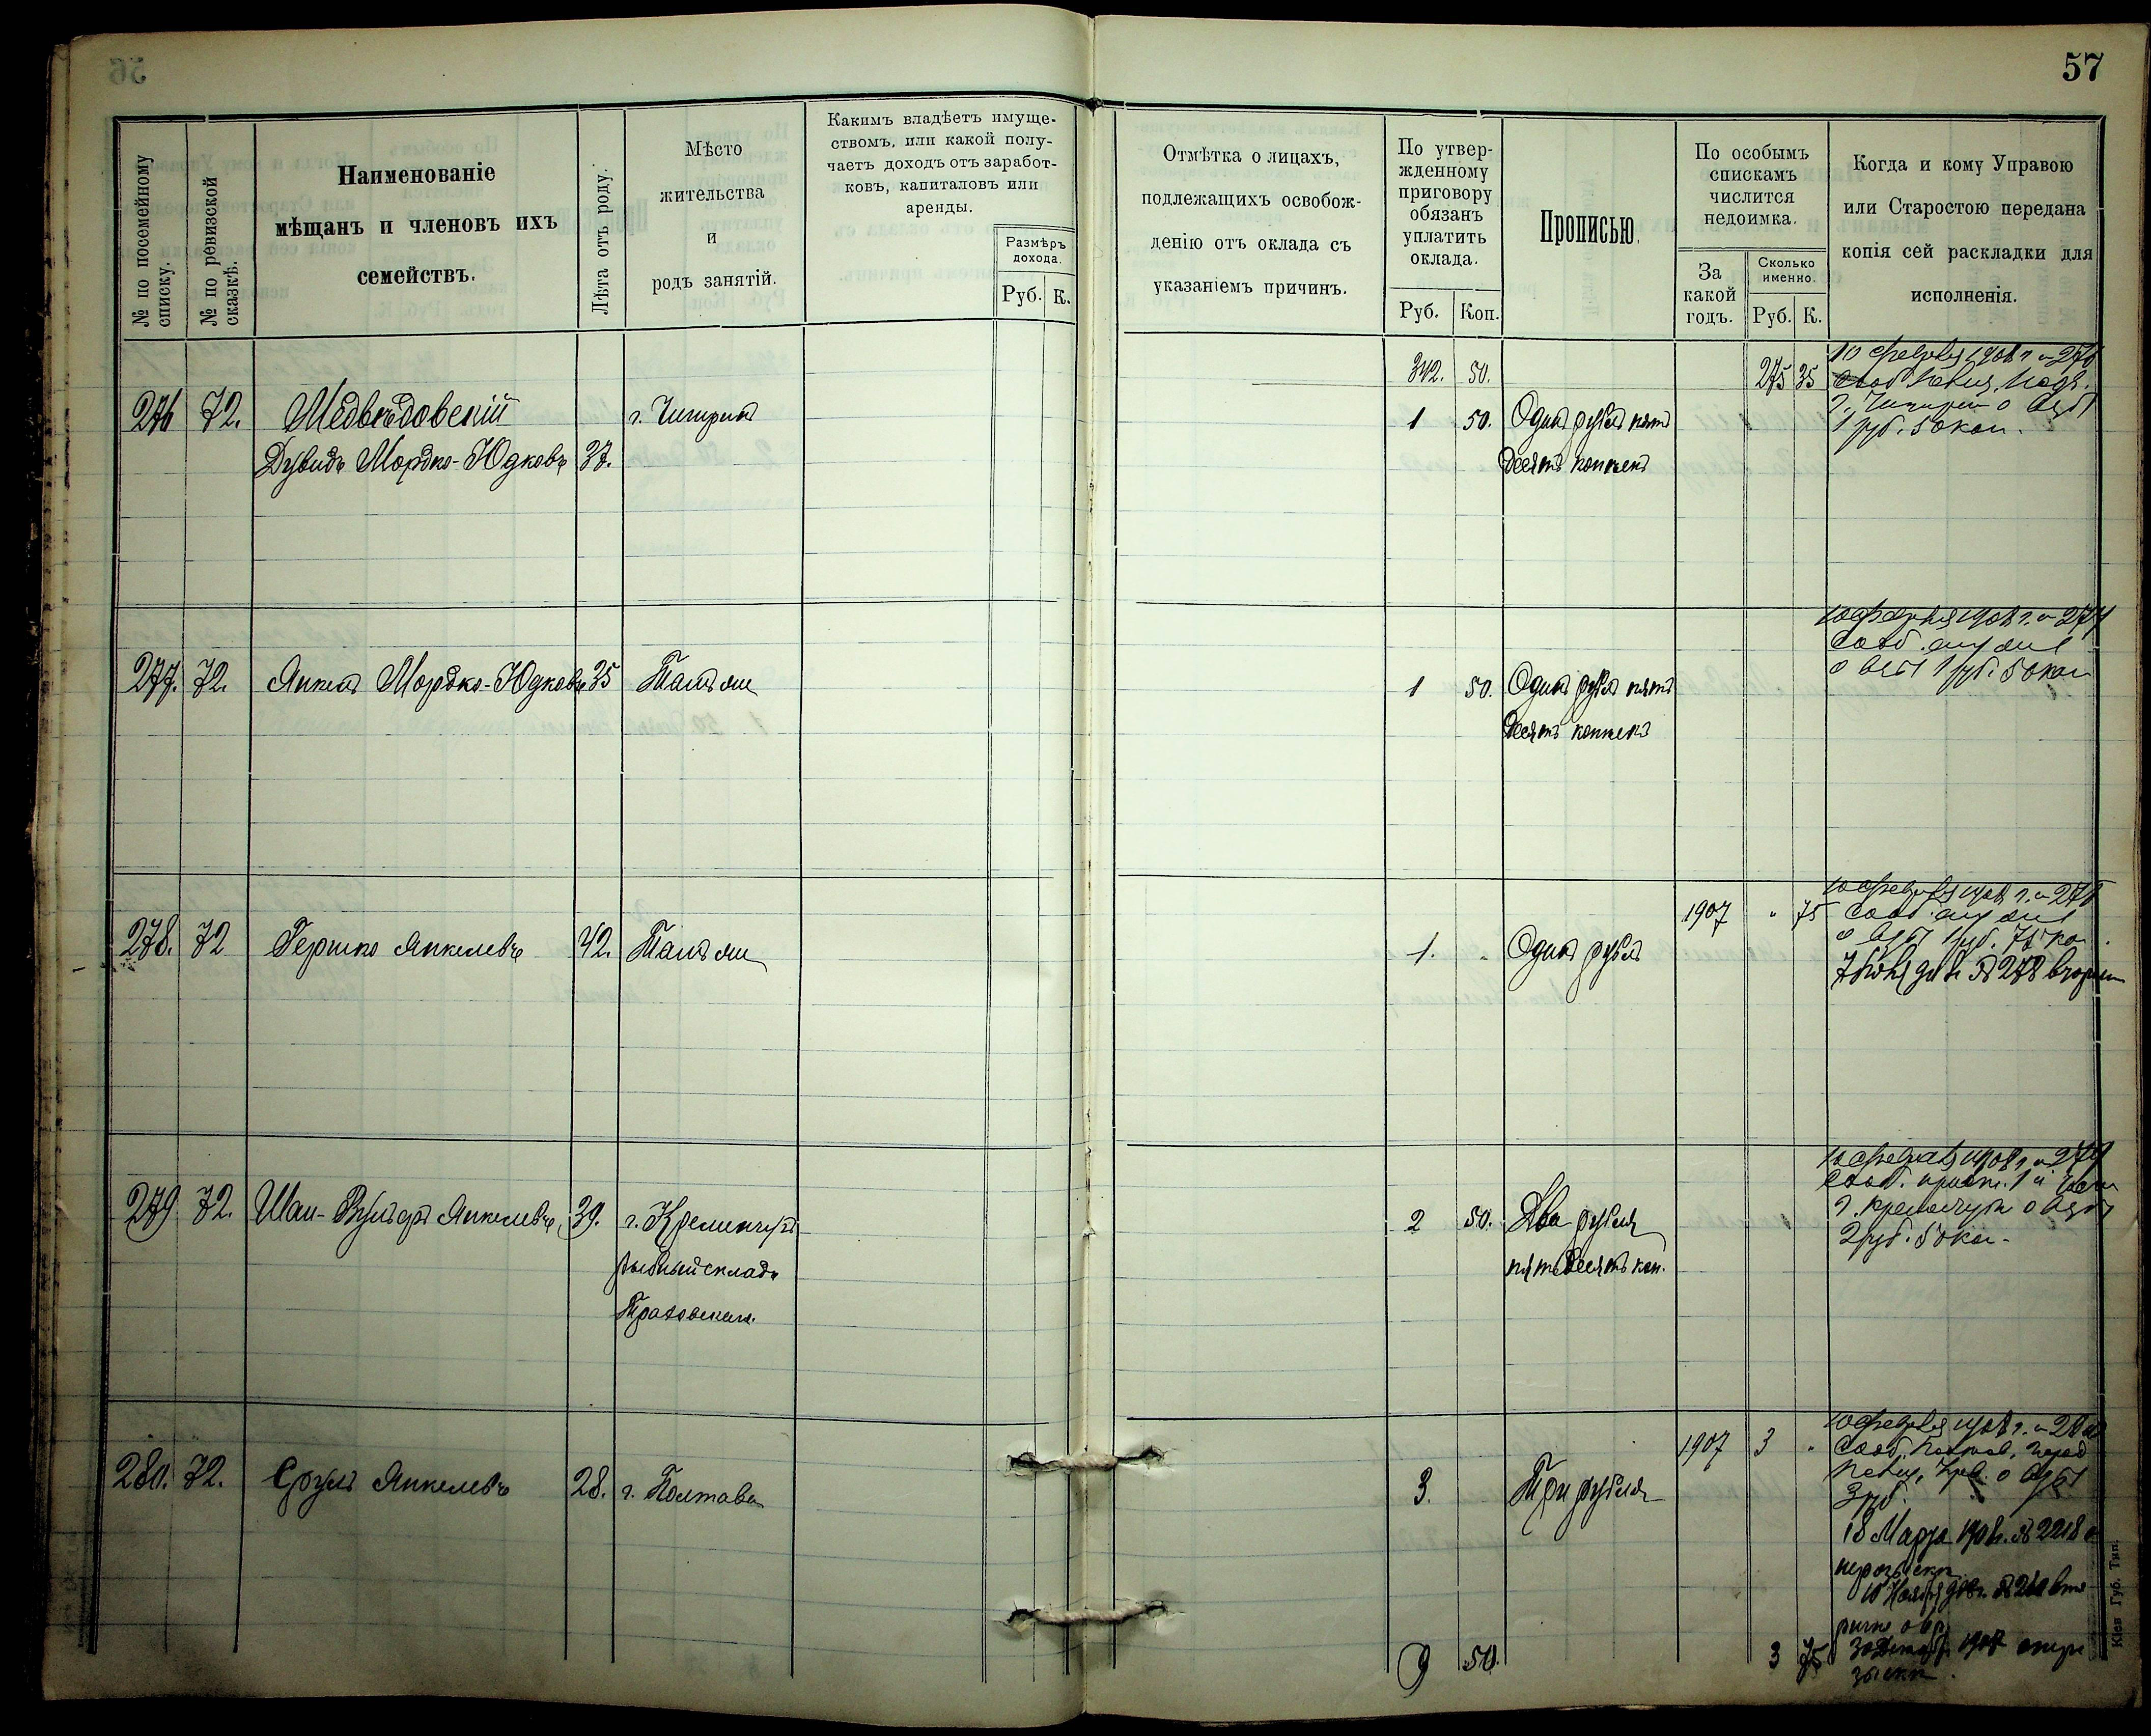 57
№ по посемейному
списку.
№ по ревизской
сказкѣ.
Наименованіе
мѣщанъ и членовъ ихъ
семействъ.
Лѣта отъ роду.
Мѣсто
жительства
и
родъ занятій.
Какимъ владѣетъ имуще-
ствомъ, или какой полу-
чаетъ доходъ отъ заработ-
ковъ, капиталовъ или
аренды.
Размѣръ
дохода.
Руб. К.
Отмѣтка о лицахъ,
подлежащихъ освобож-
денію отъ оклада съ
указаніемъ причинъ.
По утвер-
жденному
приговору
обязанъ
уплатить
оклада.
Руб. Коп.
Прописью.
По особымъ
спискамъ
числится
недоимка.
За
какой
годъ.
Сколько
именно.
Руб. К.
Когда и кому Управою
или Старостою передана
копія сей раскладки для
исполненія.
342. 50. 275 35
276 72. Медвѣдовскій г. Чигиринъ 1 50. Одинъ рубль пять
Дувидъ Мордко-Юдковъ 37. десятъ копѣекъ
10 февраля 1908 г. № 276
г. Чигирин о взыс
1 руб. 50 коп.
277. 72. Янкель Мордко-Юдковъ 35 Тамъ же 1 50. Одинъ рубль пять
десятъ копѣекъ
10 февраля 1908 г. № 277
сооб.
о взыс 1 руб. 50 коп
278. 72 Гершко Янкелевъ 42. Тамъ же 1. " Одинъ рубль 1907 " 75
10 февраля 1908 г. № 278
сооб.
о взыс 1 руб. 75 ко
№ 278
279 72. Шая-Вульфъ Янкелевъ 39. г. Кременчугъ 2 50. Два рубля
рыбный складъ пятьдесятъ коп.
10 февраля 1908 г. № 279
сооб. прист. 1 й части
г. Кременчуга о взыс
2 руб. 50 коп.
280. 72. Сруль Янкелевъ 28. г. Полтава 3. Три рубля 1907 3 "
10 февраля 1908 г. № 280
сооб. Полтав. город
о взыс
3 руб.
18 Марта 1908 г. № 2218 о
нерозыскѣ
1908
зыскѣ.
9 50. 3 75
Кіев Губ. Тип.